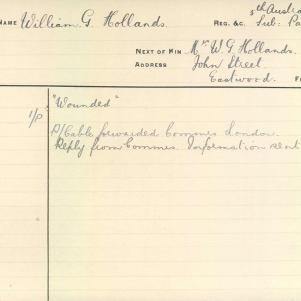 NAME William G. Hollands. REG. &C. 5th Austra
Sub: Pa
NEXT OF KIN Mrs W G Hollands.
ADDRESS John Street
Eastwood.
"Wounded"
1/P
P/Cable forwarded Commrs London.
Reply from Commrs. Information sent